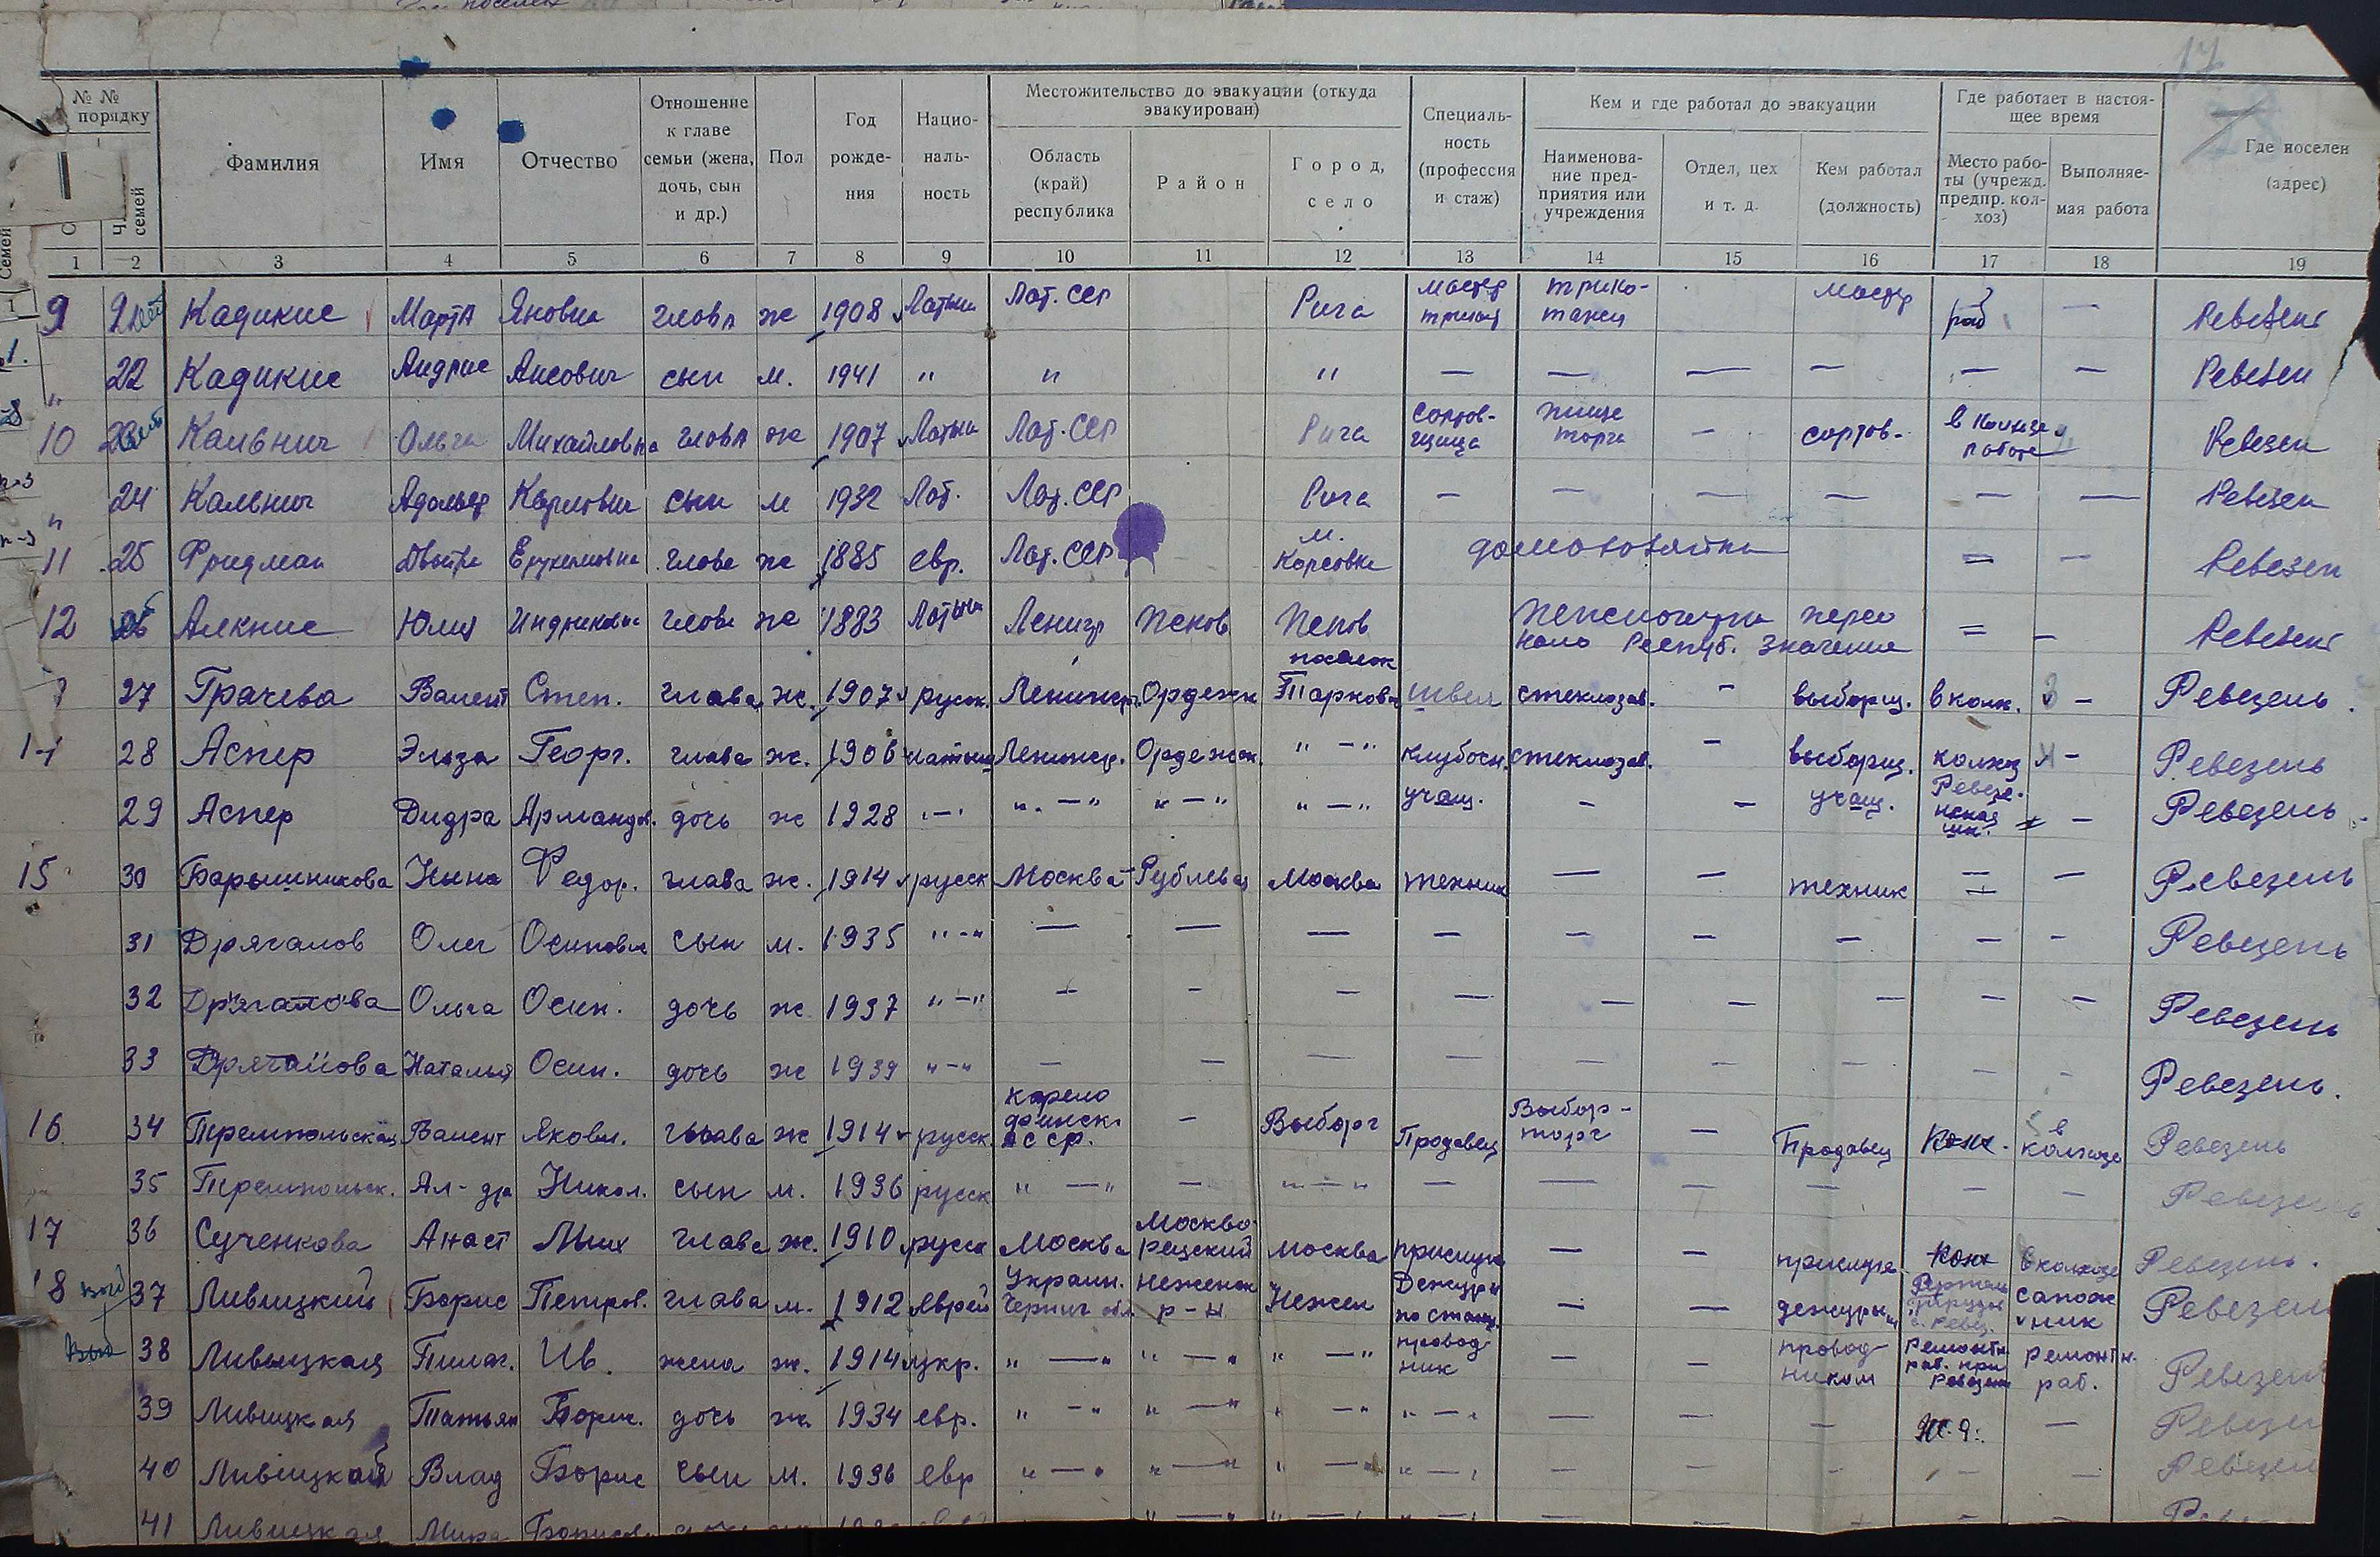 17
№ №
порядку
Фамилия
Имя
Отчество
Отношение
к главе
семьи (жена,
дочь, сын
и др.)
Пол
Год
рожде-
ния
Нацио-
наль-
ность
Местожительство до эвакуации (откуда
эвакуирован)
Область
(край)
республика
Район
Город,
село
Специаль-
ность
(профессия
и стаж)
Кем и где работал до эвакуации
Наименова-
ние пред-
приятия или
учреждения
Отдел, цех
и т. д.
Кем работал
(должность)
Где работает в настоя-
щее время
Место рабо-
ты (учрежд.
предпр. кол-
хоз)
Выполняе-
мая работа
Где поселен
(адрес)
семей
1 2 3 4 5 6 7 8 9 10 11 12 13 14 15 16 17 18 19
9 Кадикис Марта Яновна глова ж 1908 Латыш Лат. ССР Рига мастер трико- мастер раб — Ревезень
" 22 Кадикис Андрис Ансович сын м. 1941 " " " — — — — — — Ревезен
10 Кальнич Ольга Михайловна глова ж 1907 Латыш Лат. ССР Рига сортов-щица торга — сортов- в колхозе работе Ревезен
" 24 Кальнич Адольф Карлович сын м 1932 Лат. Лат. ССР Рига — — — — — — Ревезен
11 25 Фридман Двейра глова ж 1885 евр. Лат. ССР м. Корсовка домохозяйка = — Ревезен
12 Алкнис Юлия Индриковна глова ж 1883 Латыш Ленигр Псков Псков пенсионерка персо
нала Респуб. значения = — Ревезень
27 Грачева Валент Степ. глава ж. 1907 русск. Ленингр. Орджон поселок Тарковк швея стеклозав. — выборщ. в колх. — Ревезень
14 28 Аспер Эльза Георг. глава ж. 1906 латыш Ленингр. Орджон. " — " стеклозав. — выборщ. колхоз — Ревезень
29 Аспер Дидра Армандов. дочь ж 1928 " — " " — " " — " " — " учащ. — — учащ. Ревезе-нская шк. — Ревезень
15 30 Барышникова Нина Федор. глава ж. 1914 русск Москва Рублева Москва техник — — техник = — Ревезень
31 Дрягалов Олег Осипович сын м. 1935 " — " — — — — — — — — — Ревезень
32 Дрягалова Ольга Осип. дочь ж 1937 " — " — — — — — — — — — Ревезень
33 Дрягалова Наталья Осип. дочь ж 1939 " — " — — — — — — — — — Ревезень.
16 34 Перемпольская Валент Яковл. глава ж 1914 русск. карело финск. ССР. — Выборг Продавец Выбор-торг — Продавец Колх. в колхозе Ревезень
35 Перемпольск. Ал-др Никол. сын м. 1936 русск " — " — " — " — — — — — — Ревезень
17 36 Сученкова Анаст Мих глава ж. 1910 русск Москва Москво рецкий Москва прислуга — — прислуга Колх в колхозе Ревезень.
18 37 Ливицкий Борис Петров. глава м. 1912 еврей Украин. Черниг обл Неженск р-н Нежен Дежурн по станц. — — дежурным сапож ник Ревезень
38 Ливицкая Пелаг. Ив. жена ж. 1914 укр. " — " " — " " — " провод ник — — провод ником Ремонтн. раб. при Ревезень ремонтн. раб. Ревезень
39 Ливицкая Татьян Борис. дочь ж 1934 евр. " — " " — " " — " " — " — — — — Ревезен
40 Ливицкий Влад Борис сын м. 1936 евр " — " " — " " — " " — " — — — — — Ревезен
41 Ливицкая Мира Борисов.